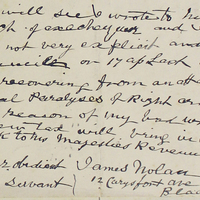 will see I wrote to
of exchequer and I
not very explicit and
on 17 ap last
recovering from another
Paralyses of Right arm
reason of my bad
will bring in
to his Majesties Revenue
obedient James Nolan
Servant 12 Carysfort Ave